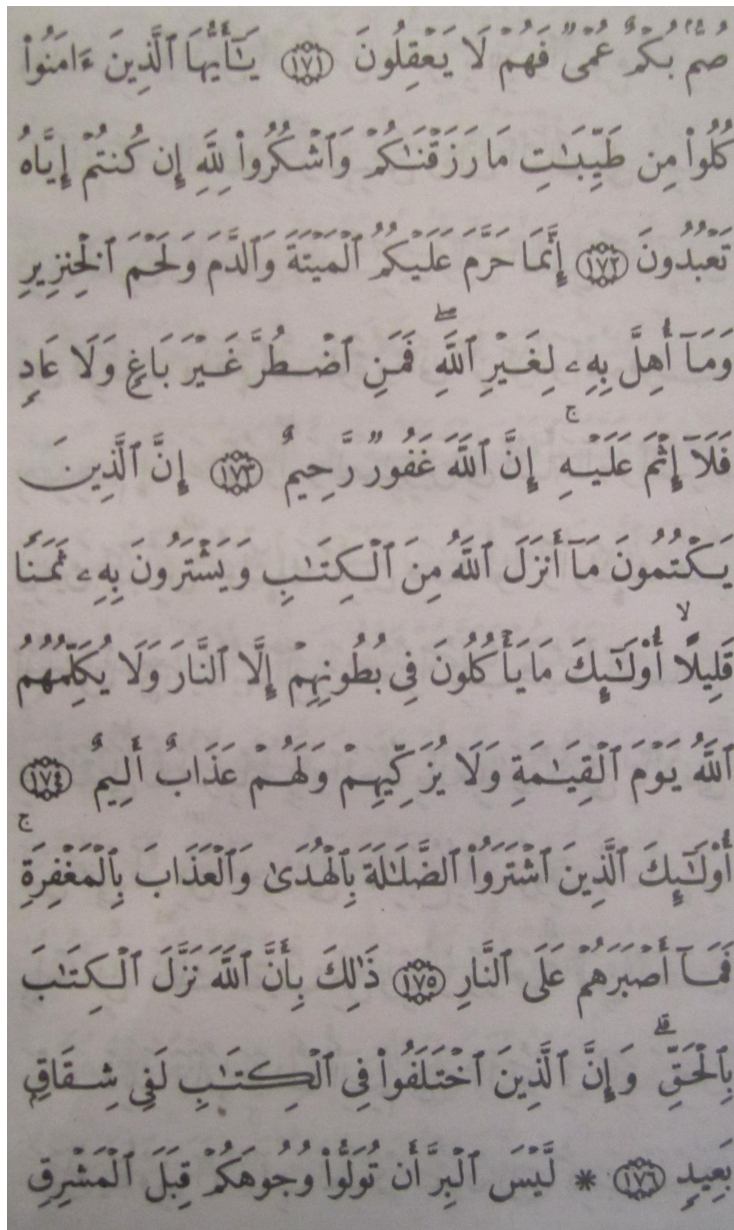 صُمُّۢ بُكۡمٌ عُمۡيٞ فَهُمۡ لَا يَعۡقِلُونَ ١٧١ يَـٰٓأَيُّهَا ٱلَّذِينَ ءَامَنُواْ
كُلُواْ مِن طَيِّبَـٰتِ مَا رَزَقۡنَـٰكُمۡ وَٱشۡكُرُواْ لِلَّهِ إِن كُنتُمۡ إِيَّاهُ
تَعۡبُدُونَ ١٧٢ إِنَّمَا حَرَّمَ عَلَيۡكُمُ ٱلۡمَيۡتَةَ وَٱلدَّمَ وَلَحۡمَ ٱلۡخِنزِيرِ
وَمَآ أُهِلَّ بِهِۦ لِغَيۡرِ ٱللَّهِۖ فَمَنِ ٱضۡطُرَّ غَيۡرَ بَاغٖ وَلَا عَادٖ
فَلَآ إِثۡمَ عَلَيۡهِۚ إِنَّ ٱللَّهَ غَفُورٞ رَّحِيمٌ ١٧٣ إِنَّ ٱلَّذِينَ
يَكۡتُمُونَ مَآ أَنزَلَ ٱللَّهُ مِنَ ٱلۡكِتَـٰبِ وَيَشۡتَرُونَ بِهِۦ ثَمَنٗا
قَلِيلًاۙ أُوْلَـٰٓئِكَ مَا يَأۡكُلُونَ فِي بُطُونِهِمۡ إِلَّا ٱلنَّارَ وَلَا يُكَلِّمُهُمُ
ٱللَّهُ يَوۡمَ ٱلۡقِيَـٰمَةِ وَلَا يُزَكِّيهِمۡ وَلَهُمۡ عَذَابٌ أَلِيمٌ ١٧٤
أُوْلَـٰٓئِكَ ٱلَّذِينَ ٱشۡتَرَوُاْ ٱلضَّلَـٰلَةَ بِٱلۡهُدَىٰ وَٱلۡعَذَابَ بِٱلۡمَغۡفِرَةِۚ
فَمَآ أَصۡبَرَهُمۡ عَلَى ٱلنَّارِ ١٧٥ ذَٰلِكَ بِأَنَّ ٱللَّهَ نَزَّلَ ٱلۡكِتَـٰبَ
بِٱلۡحَقِّۗ وَإِنَّ ٱلَّذِينَ ٱخۡتَلَفُواْ فِي ٱلۡكِتَـٰبِ لَفِي شِقَاقِۭ
بَعِيدٖ ١٧٦ * لَّيۡسَ ٱلۡبِرَّ أَن تُوَلُّواْ وُجُوهَكُمۡ قِبَلَ ٱلۡمَشۡرِقِ